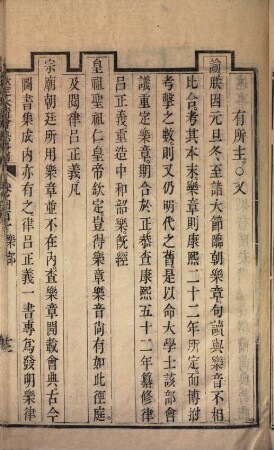 有所主〇又
諭朕因元旦冬至諸大節臨朝樂章句讀與樂音不相
比合考其本末樂章則康熙二十二年所定而摶拊
考擊之數則又仍明代之舊是以命大學士該部會
議重定樂章期合於正恭查康熙五十二年纂修律
呂正義重造中和韶樂旣經
皇祖聖祖仁皇帝欽定豈得樂章樂音尙有如此徑庭
及閱律呂正義凡
宗廟朝廷所用樂章並不在內查樂章閒載會典古今
圖書集成內亦有之律呂正義一書專爲發明樂律
樂部